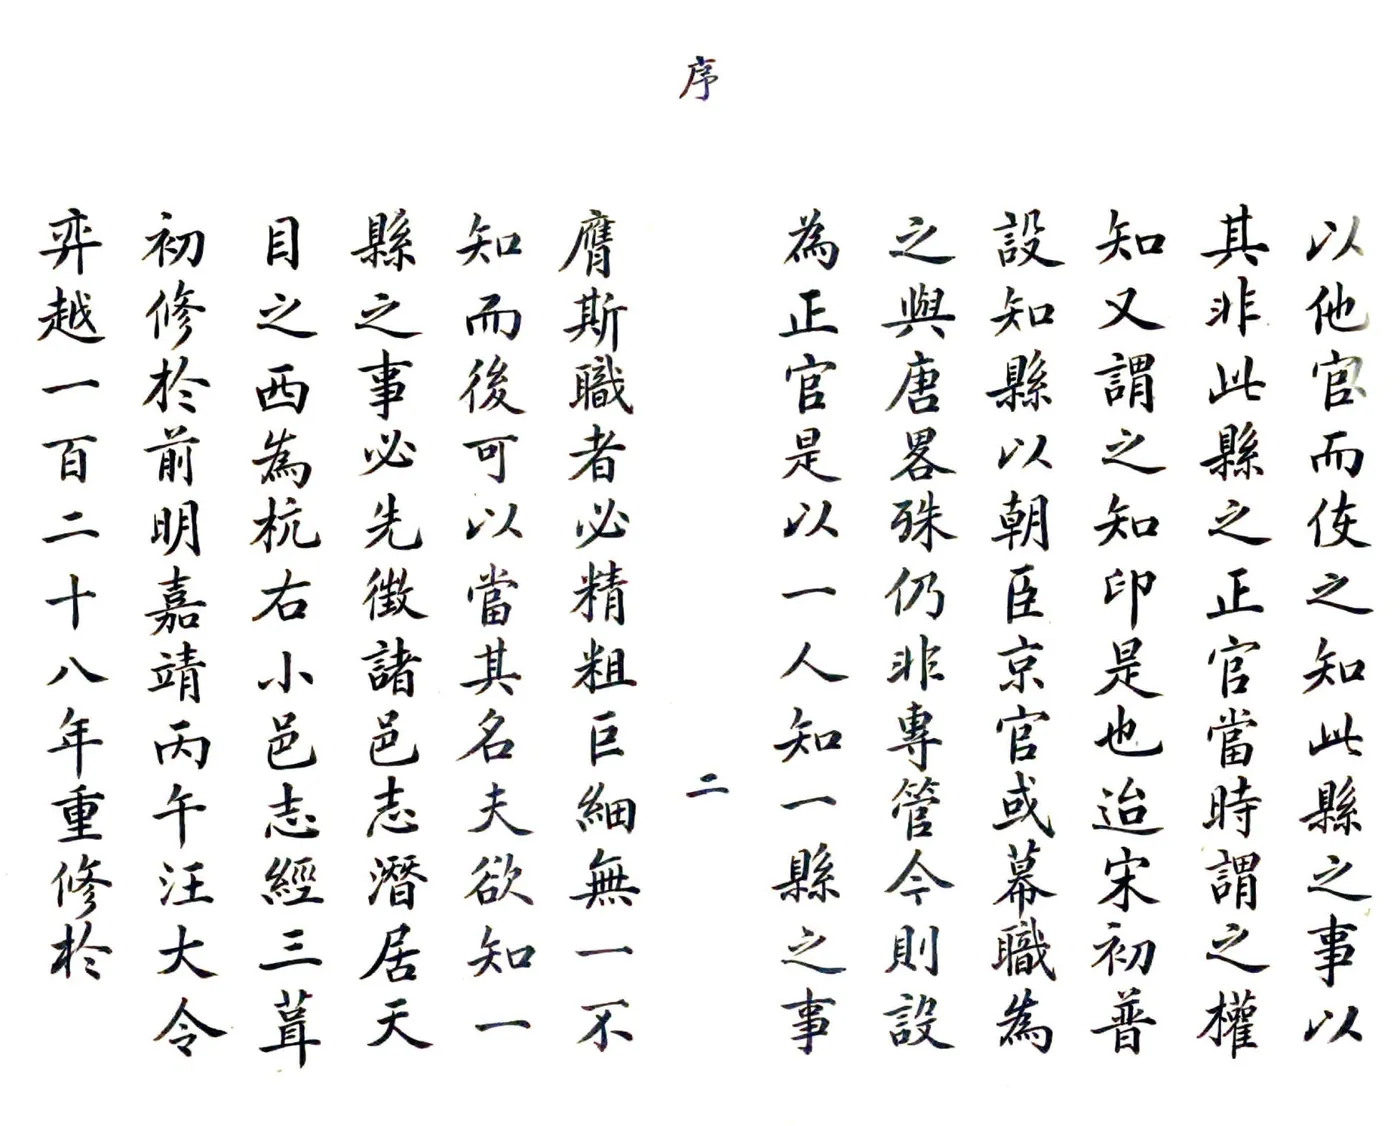 序
以他官而使之知此縣之事以
其非此縣之正官當時謂之權
知又謂之知印是也迨宋初普
設知縣以朝臣京官或幕職為
之與唐畧殊仍非專管今則設
為正官是以一人知一縣之事
二
膺斯職者必精粗巨細無一不
知而後可以當其名夫欲知一
縣之事必先徵諸邑志潛居天
目之西為杭右小邑志經三葺
初修於前明嘉靖丙午汪大令
弈越一百二十八年重修於